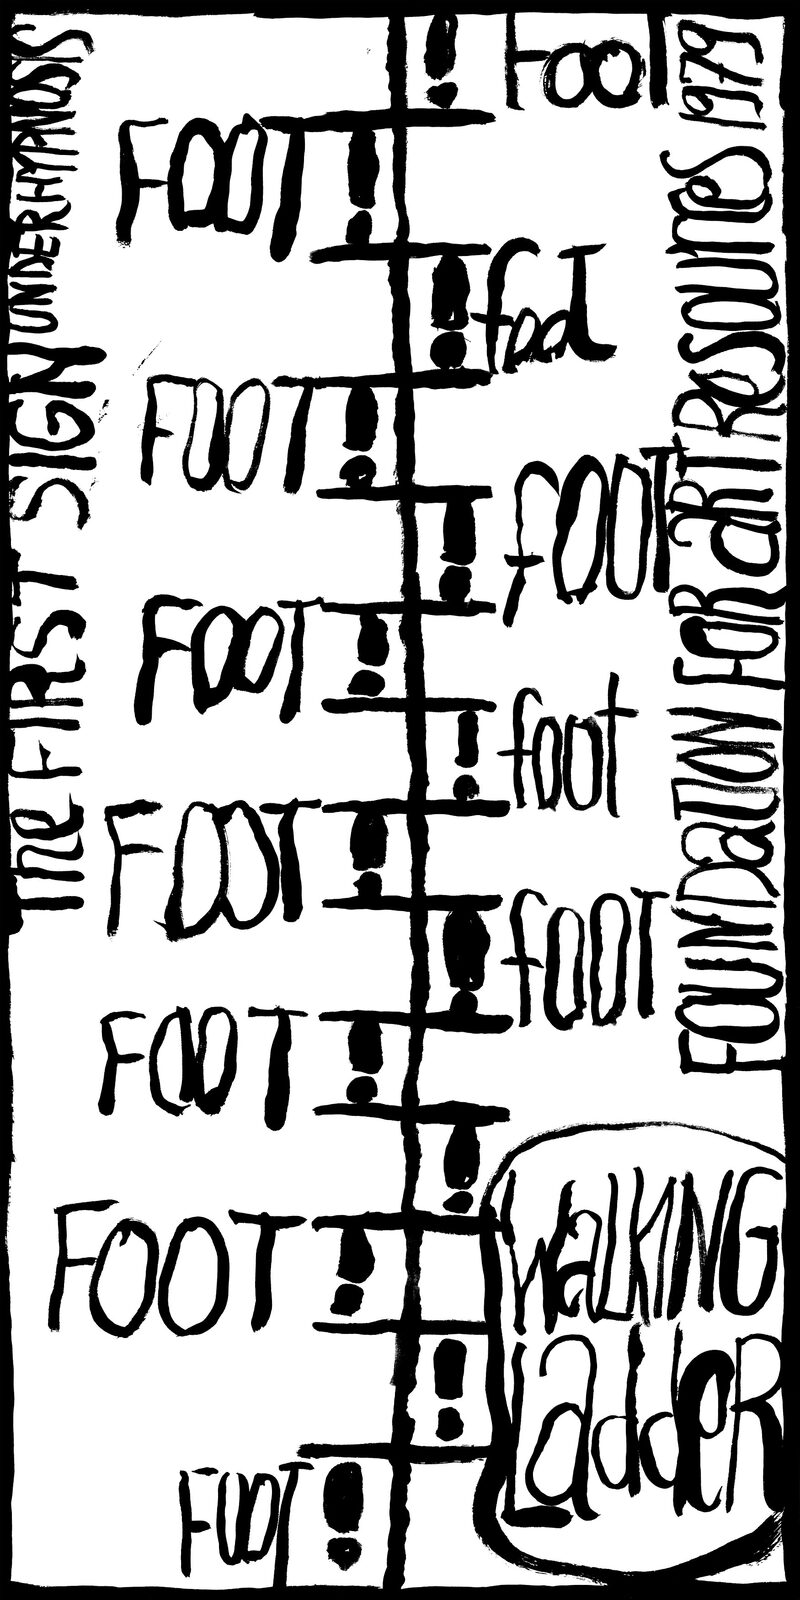 The FIRST SIGN UNDERHYPNOSIS
FooT
FOOT
fooT
FOOT
fOOT
FOOT
foot
FOOT
fOOT
FOOT
FOOT
FOOT
FOUNDaTION FOR aRT ReSOURCeS 1979
WaLKING
LaddeR